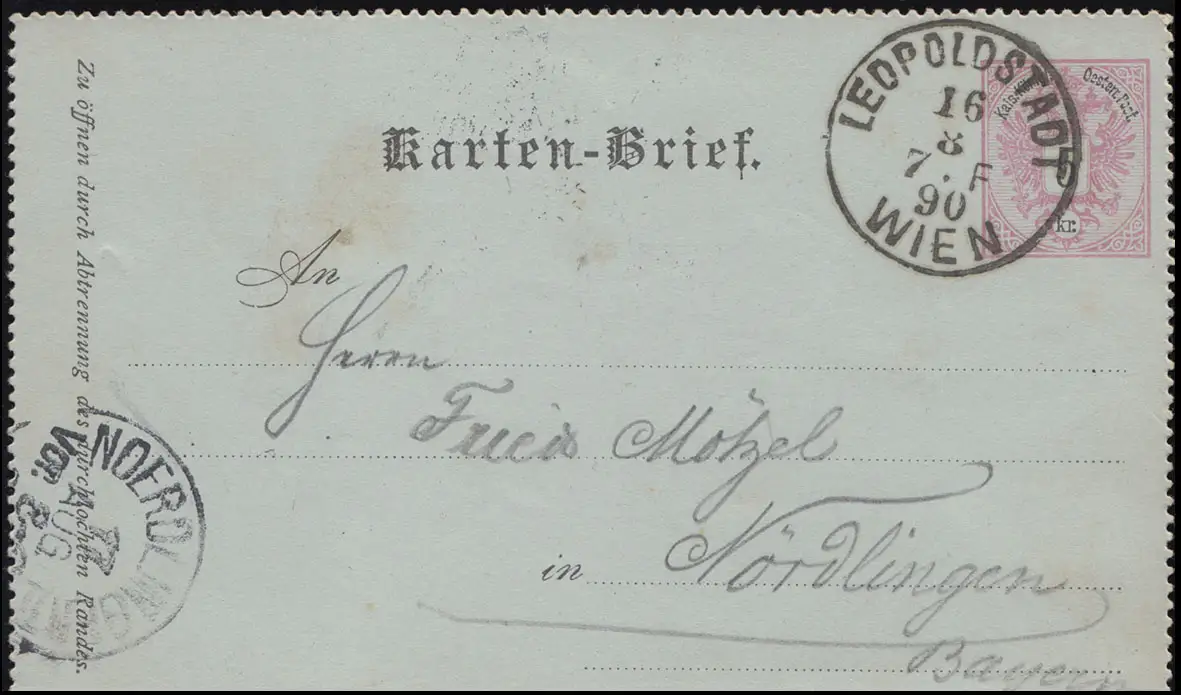 Zu öffnen durch Abtrennung des durchlochten Randes.
Karten-Brief.
LEOPOLDSTADT
16
8
7. F
90
WIEN
Kais. Kön. Oesterr. Post.
5
kr.
An
Herrn
Mötzel
in Nördlingen
Bayern
NOERDLINGEN
17
AUG
Vor. 8